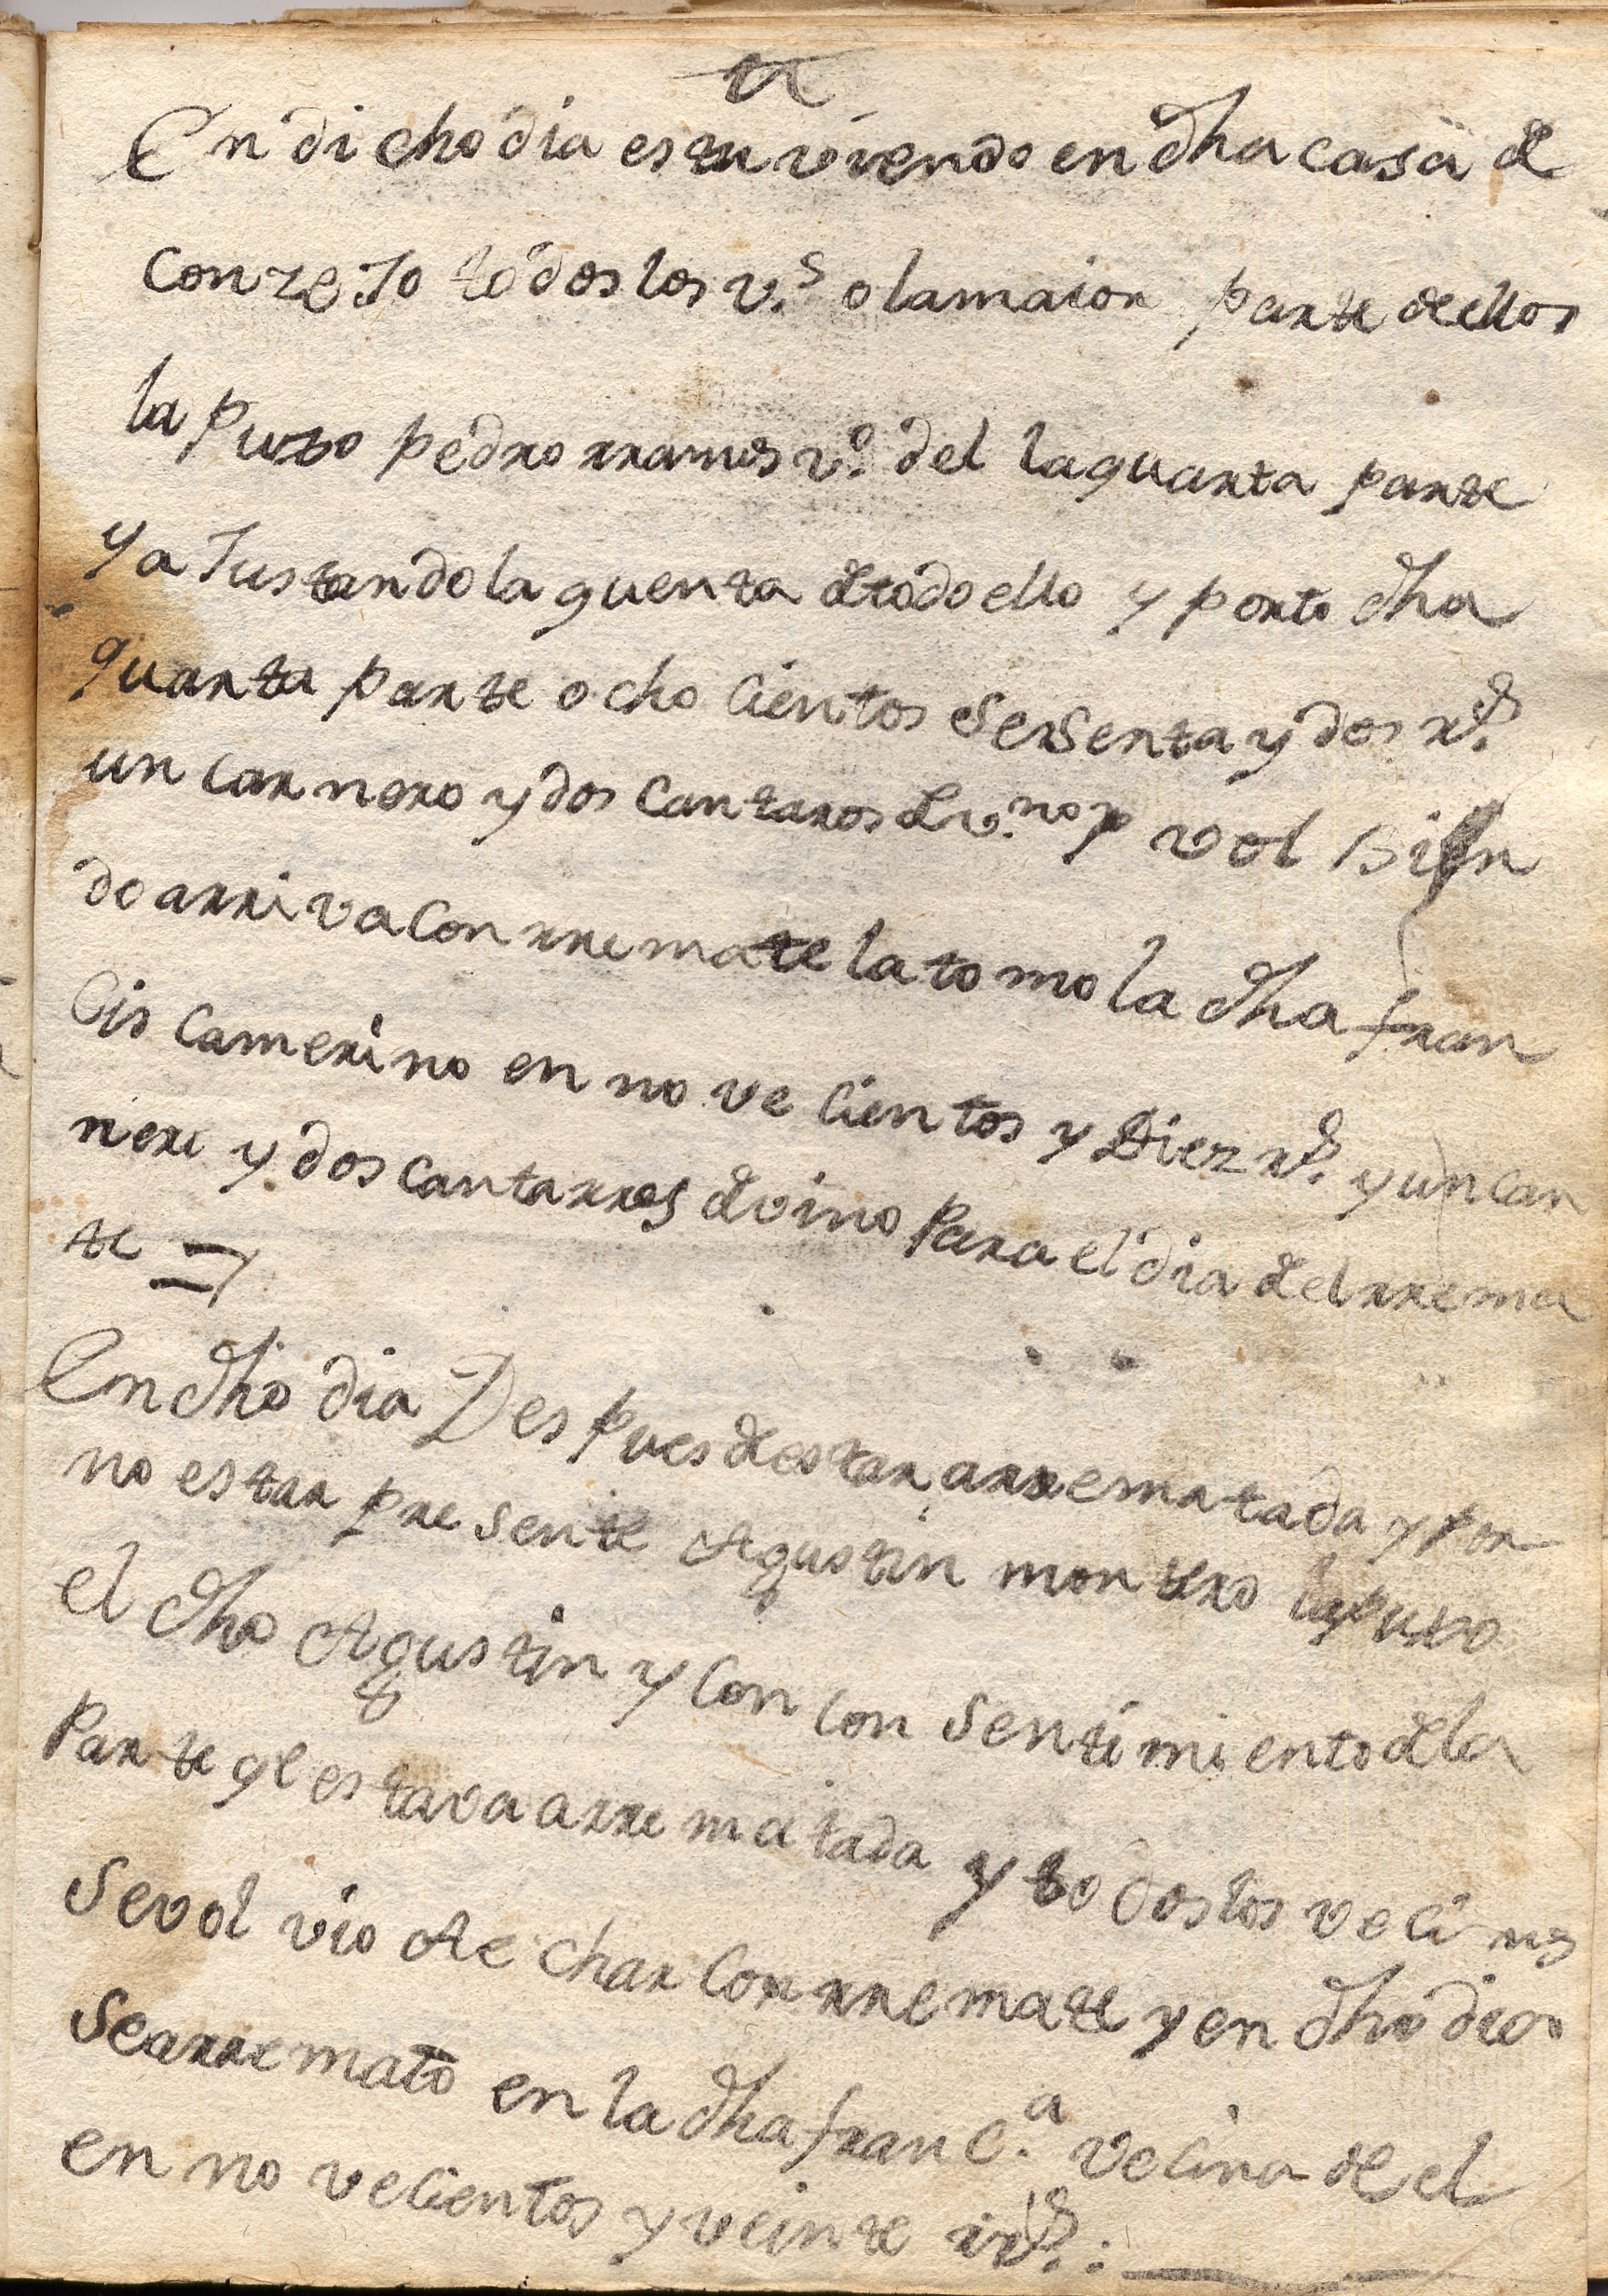 En dicho dia estuviendo en dha casa de
conzeJo todos los v.s o la maior parte de ellos
la puxo pedro rramos vº del la quarta parte
y aJustando la quenta de todo ello y porto dha
quarta parte ocho cientos sesenta y dos rs.
un carnero y dos cantaros de v.no y vol bien
do arriva con rremate la tomo la dha fran
cis camerino en no ve cientos y Diez rs. y un car
nero y dos cantarros de vino para el dia del rrema
te
En dho dia Despues de estar arrematada y por
no estar presente Agustin montero la puxo
el dho Agustin y con consentimiento de la
parte qe estava arrematada y todos los vecinos
se volvio Ae char con rremate y en dho dia
se arremato en la dha franc.a vecina de el
en no vecientos y veinte rrs.